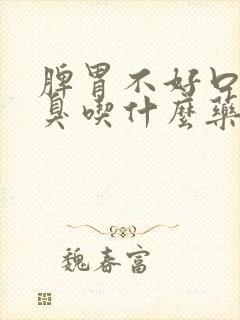 脾胃不好口
臭喫什麼藥
魏春富